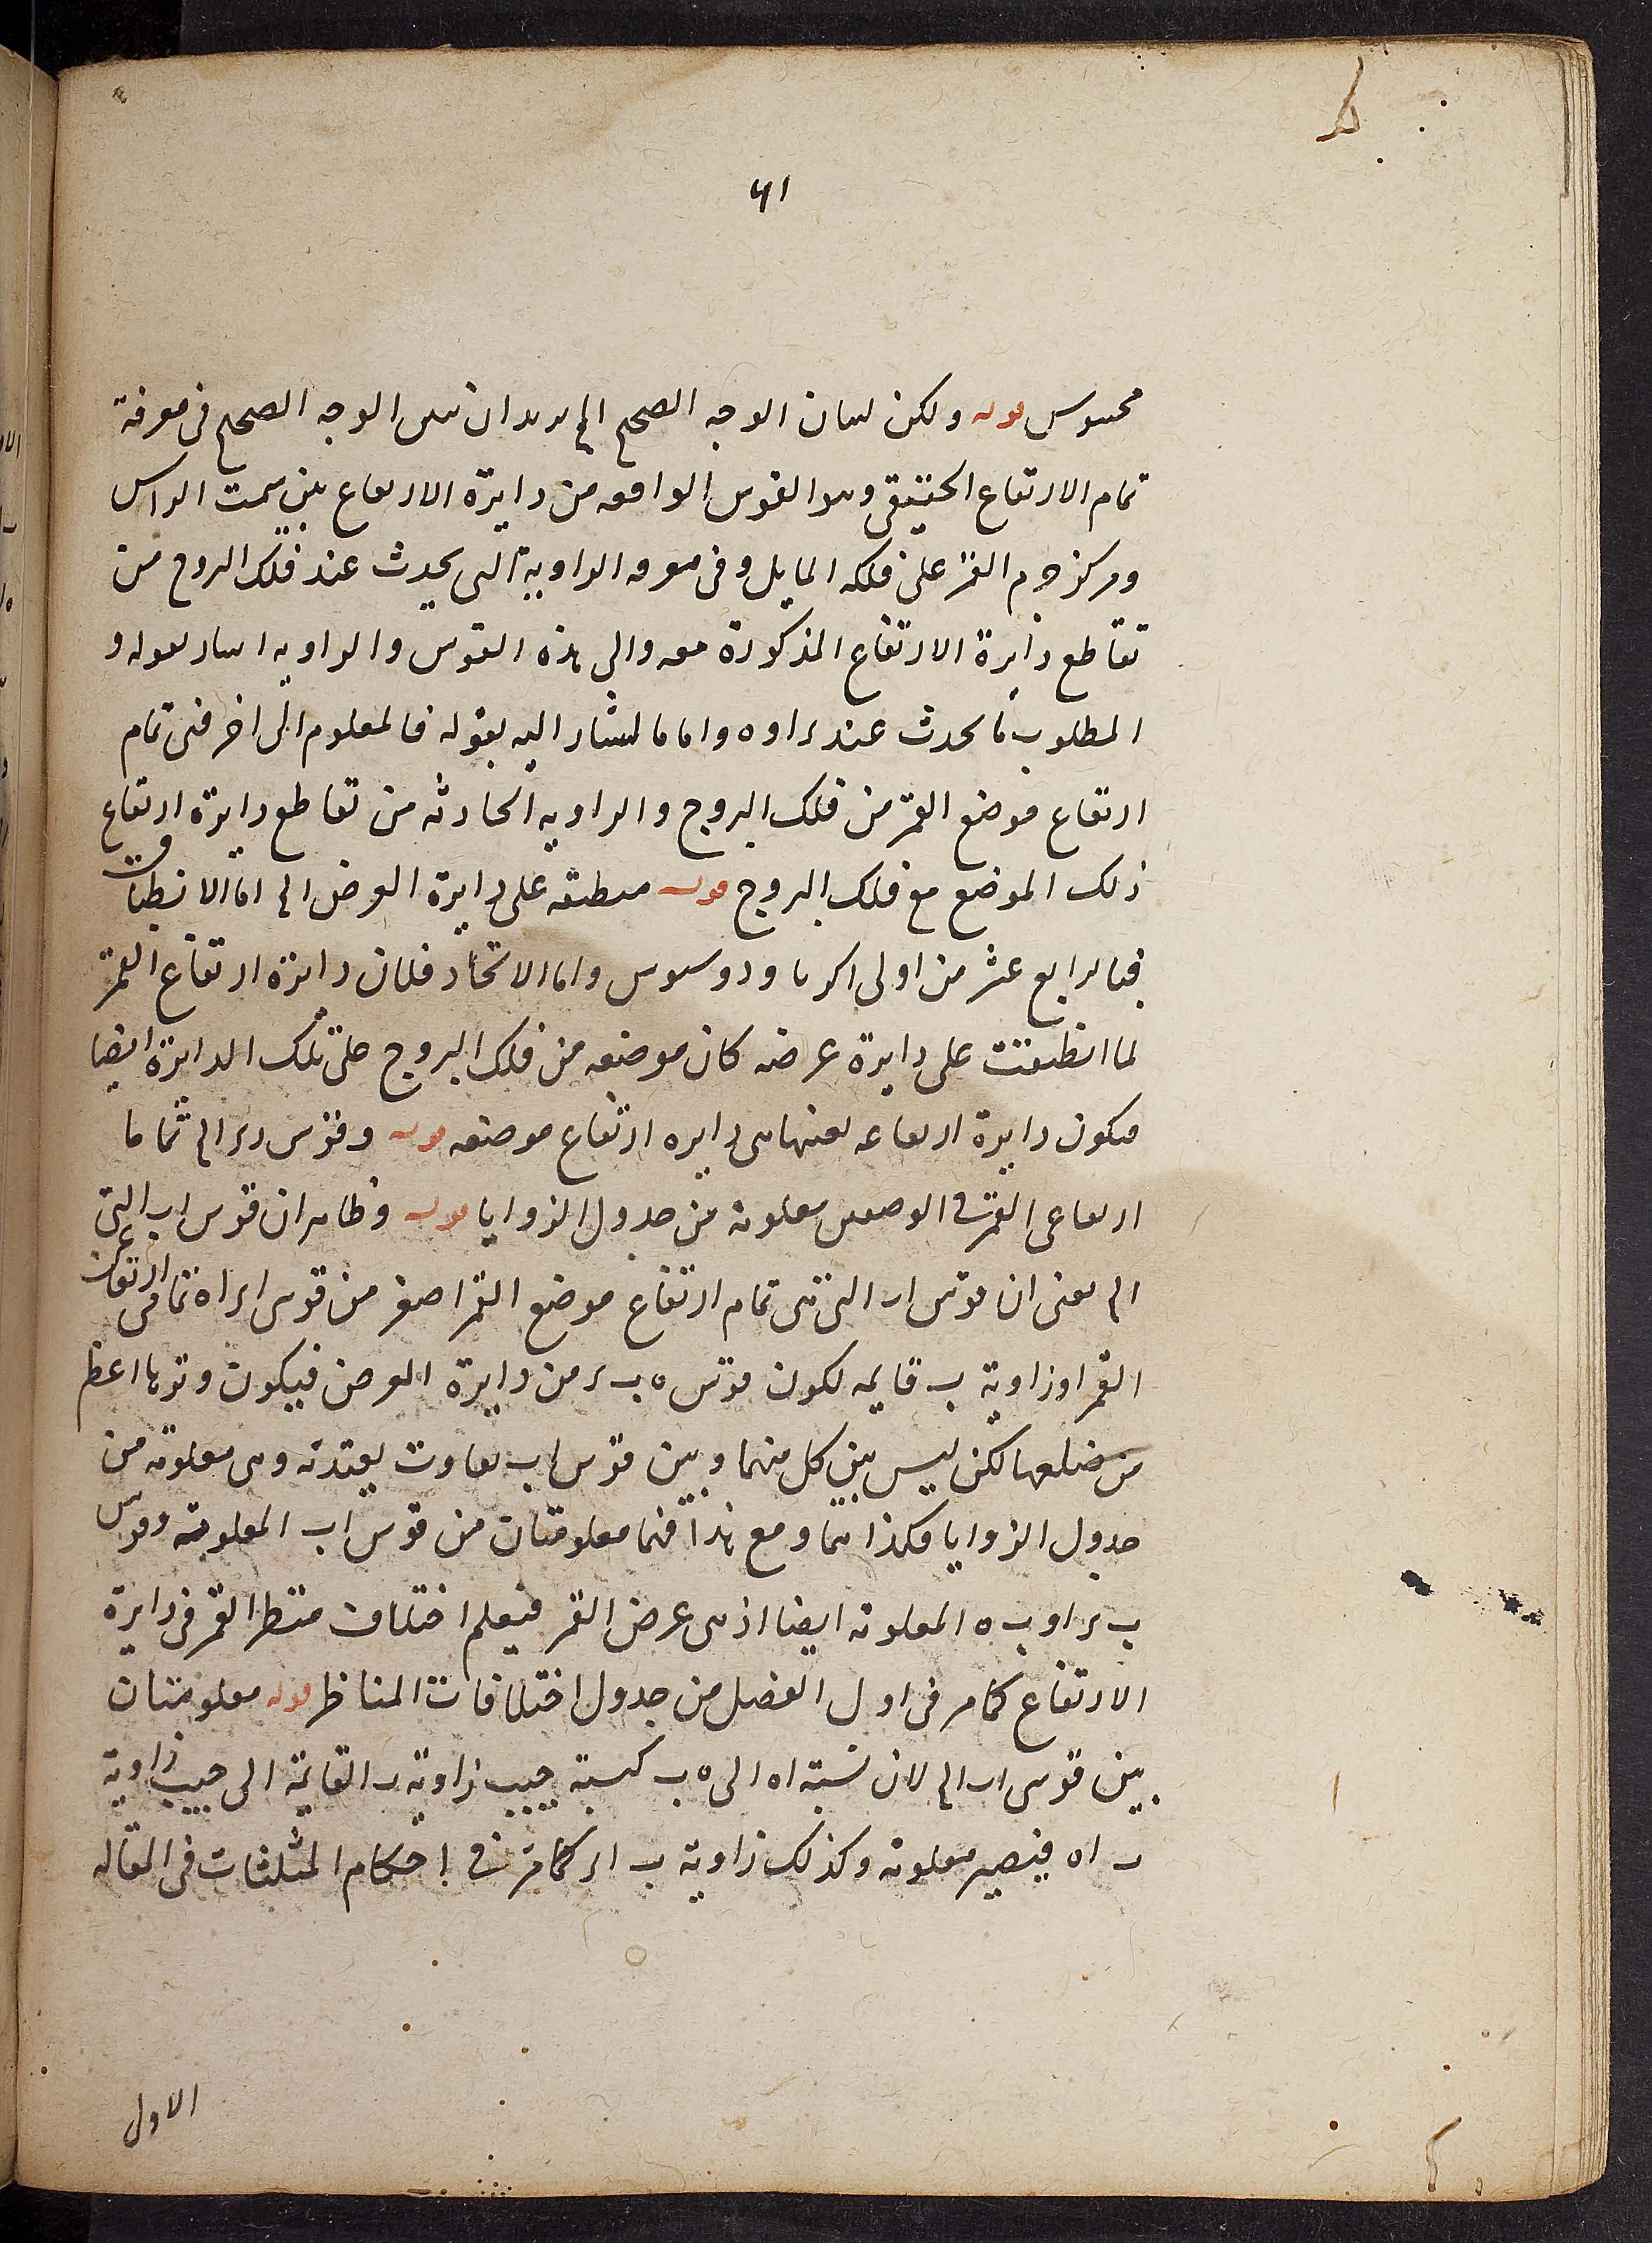 ٦١
محسوس قوله ولكن لبيان الوجه الصحيح الخ يريد ان يبين الوجه الصحيح فى معرفة
تمام الارتفاع الحقيقى وهو القوس الواقعه من دايرة الارتفاع بين سمت الراس
ومركز جرم القمر على فلكه المايل وفى معرفه الزاوية التى يحدث عند فلك البروج من
تقاطع دايرة الارتفاع المذكورة معه والى هذه القوس والزاويه اشار بقوله و
المطلوب ما يحدث عند ز او ه واما ما يشار اليه بقوله فالمعلوم الى اخر فهى تمام
ارتفاع موضع القمر من فلك البروج والزاويه الحادثه من تقاطع دايرة ارتفاع
ذلك الموضع مع فلك البروج قوله منطبقه على دايرة العرض الخ اما الانطباق
فبالرابع عشر من اولى اكر ثاودوسيوس واما الاتحاد فلان دايرة ارتفاع القمر
لما انطبقت على دايرة عرضه كان موضعه من فلك البروج على تلك الدايرة ايضا
فيكون دايرة ارتفاعه بعينها هى دايره ارتفاع موضعه قوله وقوس د ز الخ تماما
ارتفاعى القمر فى الوضعين معلومة من جدول الزوايا قوله وظاهر ان قوس اب التى
الخ يعنى ان قوس اب التى هى تمام ارتفاع موضع القمر اصغر من قوس ا ز ا ه تمامى ارتفاعى
القمر اذ زاوية ب قايمه لكون قوس ه ب ز من دايرة العرض فيكون وترها اعظم
من ضلعها لكن ليس بين كل منهما وبين قوس اب تفاوت يعتد به وهى معلومه من
جدول الزوايا فكذا هما ومع هذا فهما معلومتان من قوس اب المعلومة وقوس
ب ز او ب ه المعلومة ايضا اذ هى عرض القمر فيعلم اختلاف منظر القمر فى دايرة
الارتفاع كما مر فى اول الفصل من جدول اختلافات المناظر قوله معلومتان
بين قوسى اب الخ لان نسبة اه الى ه ب كنسبة جيب زاوية ب القايمة الى جيب زاوية
ب اه فيصير معلومة وكذلك زاوية ب ا ز كما مر فى احكام المثلثات فى المقاله
الاولى